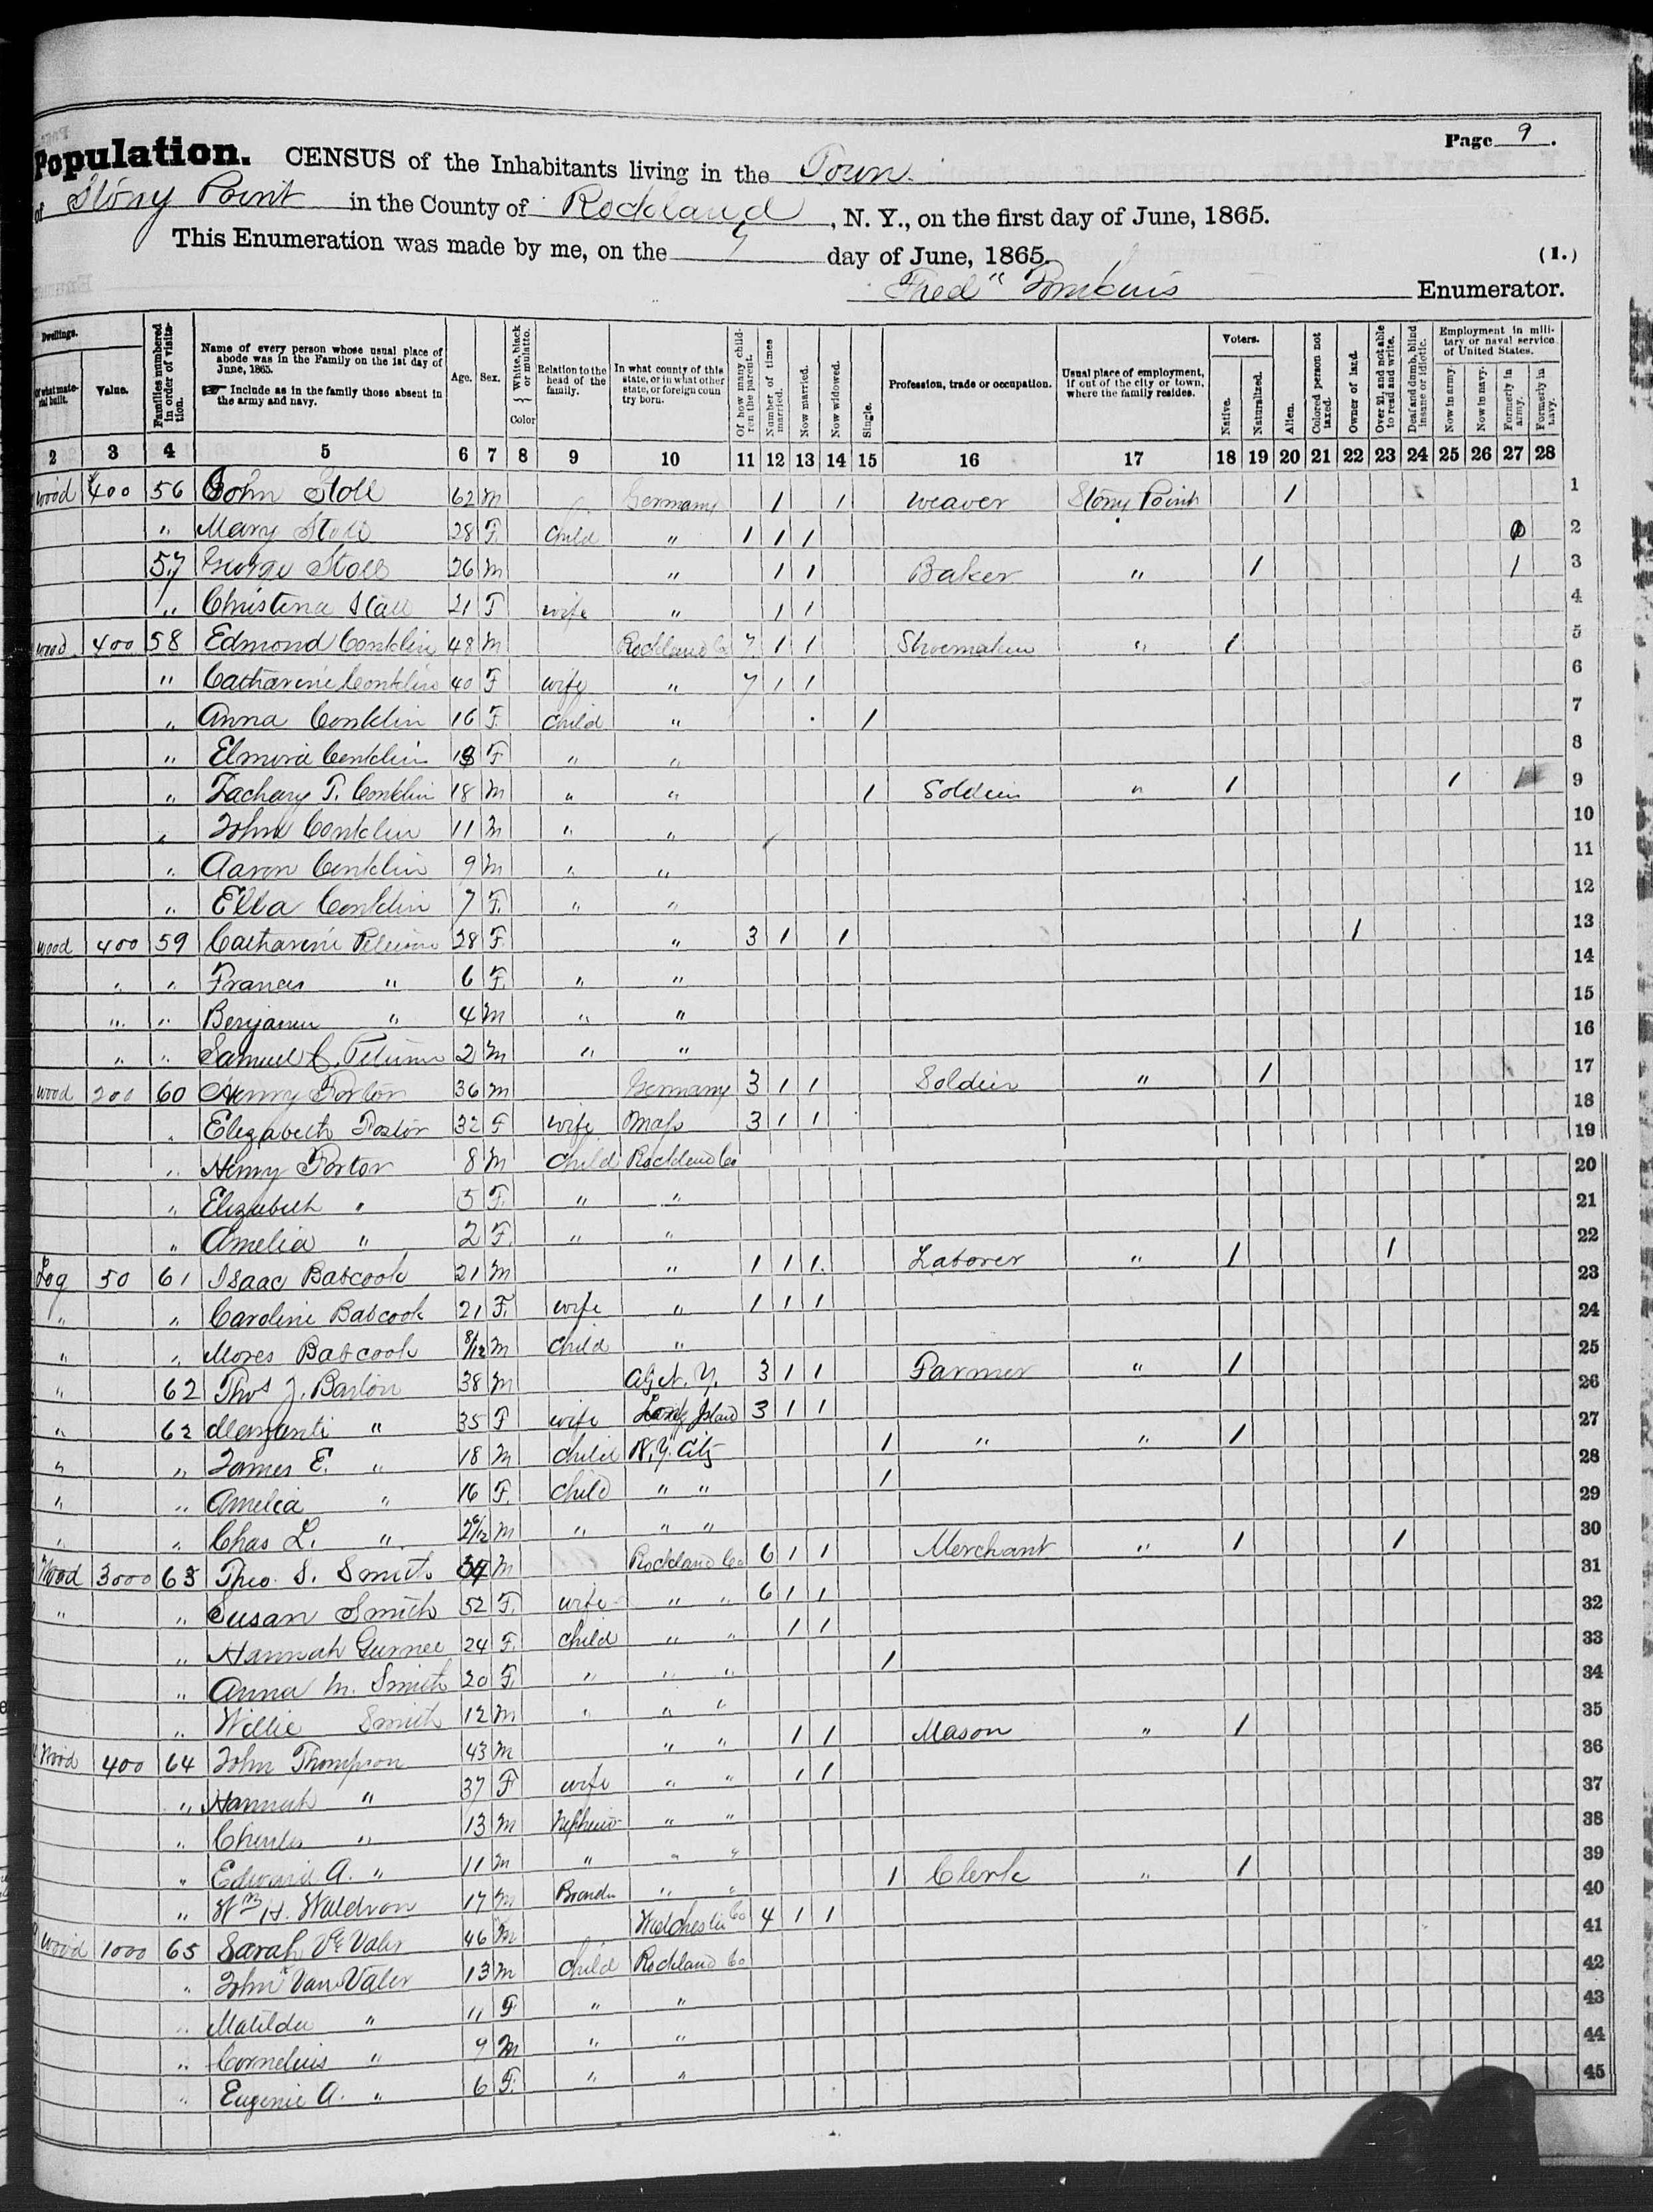 Page 9.
Population. CENSUS of the Inhabitants living in the Town
of Stony Point in the County of Rockland, N. Y., on the first day of June, 1865.
This Enumeration was made by me, on the 7 day of June, 1865. (1.)
Fred" Tomkins Enumerator.
Dwellings. Of what material built. Value. Families numbered in order of visitation. Name of every person whose usual place of abode was in the Family on the 1st day of June, 1865. Include as in the family those absent in the army and navy. Age. Sex. White, black or mulatto. Color Relation to the head of the family. In what county of this state, or in what other state, or foreign country born. Of how many children the parent. Number of times married. Now married. Now widowed. Single. Profession, trade or occupation. Usual place of employment, if out of the city or town, where the family resides. Voters. Native. Naturalized. Alien. Colored person not taxed. Owner of land. Over 21, and not able to read and write. Deaf and dumb, blind insane or idiotic. Employment in military or naval service of United States. Now in army. Now in navy. Formerly in army. Formerly in navy.
2 3 4 5 6 7 8 9 10 11 12 13 14 15 16 17 18 19 20 21 22 23 24 25 26 27 28
wood 400 56 John Stoll 62 m Germany 1 1 weaver Stony Point 1 1
" Mary Stoll 28 F Child " 1 1 1 2
57 George Stoll 26 m " 1 1 Baker " 1 1 3
" Christina Stall 21 F wife " 1 1 4
wood 400 58 Edmond Conklin 48 m Rockland Co 7 1 1 Shoemaker " 1 5
" Catharine Conklin 40 F wife " 7 1 1 6
" Anna Conklin 16 F Child " 1 7
" Elmira Conklin F " " 8
" Zachary T. Conklin 18 m " " 1 Soldier " 1 1 9
" John Conklin 11 m " " 10
" Aaron Conklin 9 m " " 11
" Ella Conklin 7 F. " " 12
wood 400 59 Catharine 28 F " 3 1 1 1 13
" " Francis " 6 F. " " 14
" " Benjamin " 4 m " " 15
" " Samuel C. 2 m " " 16
wood 200 60 Henry Porter 36 m Germany 3 1 1 Soldier " 1 17
" Elizabeth 32 F wife Mass 3 1 1 18
" Henry Porter 8 m Child Rockland Co 19
" Elizabeth " 5 F. " " 20
" Amelia " 2 F. " " 21
Log 50 61 Isaac Babcock 21 m " 1 1 1 Laborer " 1 1 22
" " Caroline Babcock 21 F. wife " 1 1 1 23
" " Moses Babcock 8/12 m Child " 24
" 62 Thos J. Barton 38 m N. Y. 3 1 1 Farmer " 1 25
" 62 " 35 F wife Long Island 3 1 1 26
" " James E. " 18 m Child N. Y. City 1 " " 1 27
" " Amelia " 16 F. Child " " 1 28
" " Chas L. " m " " " 29
Wood 3000 63 Theo. S. Smith m Rockland Co 6 1 1 Merchant " 1 1 30
" " Susan Smith 52 F. wife " " 6 1 1 31
" Hannah Gurnee 24 F. Child " " 1 1 32
" Anna M. Smith 20 F. " " " 1 33
" Willie Smith 12 m. " " " 34
Wood 400 64 John Thompson 43 m " " 1 1 Mason " 1 35
" Hannah " 37 F wife " " 1 1 36
" Charles " 13 m Nephew " " 37
" Edward A. " 11 m " " " 38
" Wm H. Waldron 17 m Boarder " " 1 Clerk " 1 39
Wood 1000 65 Sarah Vn Valer 46 m Westchester Co 4 1 1 40
" John Van Valer 13 m Child Rockland Co 41
" Matilda " 11 F " " 42
" Cornelius " 9 m " " 43
" Eugenie A. " 6 F. " " 44
45